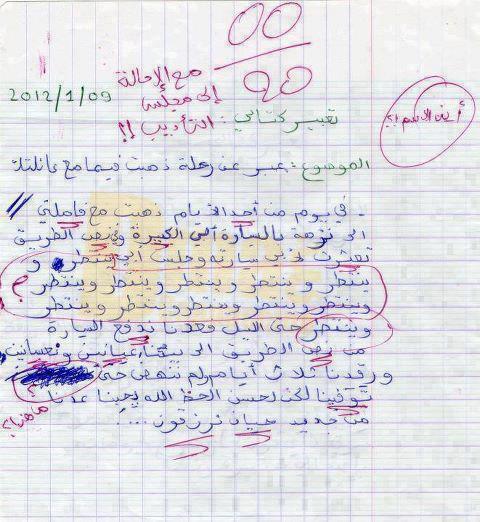 00
20
مع الإحالة
إلى مجلس
التأديب !؟
2012/1/09
تعبير كتابي :
أين الاسم !؟
الموضوع : عبر عن رحلة ذهبت فيها مع عائلتك
- في يوم من أحد الأيام ذهبت مع فاملتي
الى نزهة بالسيارة ألبي الكبيرة وفي نص الطريق
تعثرت لأبي سيارته وجلس ابي ينتظر و
ينتظر و ينتظر و ينتظر و ينتظر وينتظر ؟
وينتظر وينتظر وينتظر وينتظر و ينتظر
وينتظر حتى اليل وعدنا ندفع السيارة
من نص الطريق الى بيتنا عيانين ونعسانين
ورقدنا ثلاث أيام ولم ننهض حتى
توفينا لكن لحسن الحظ الله يحيينا عدنا
من جديد حيان نرزقون ....
ما هذا ؟!